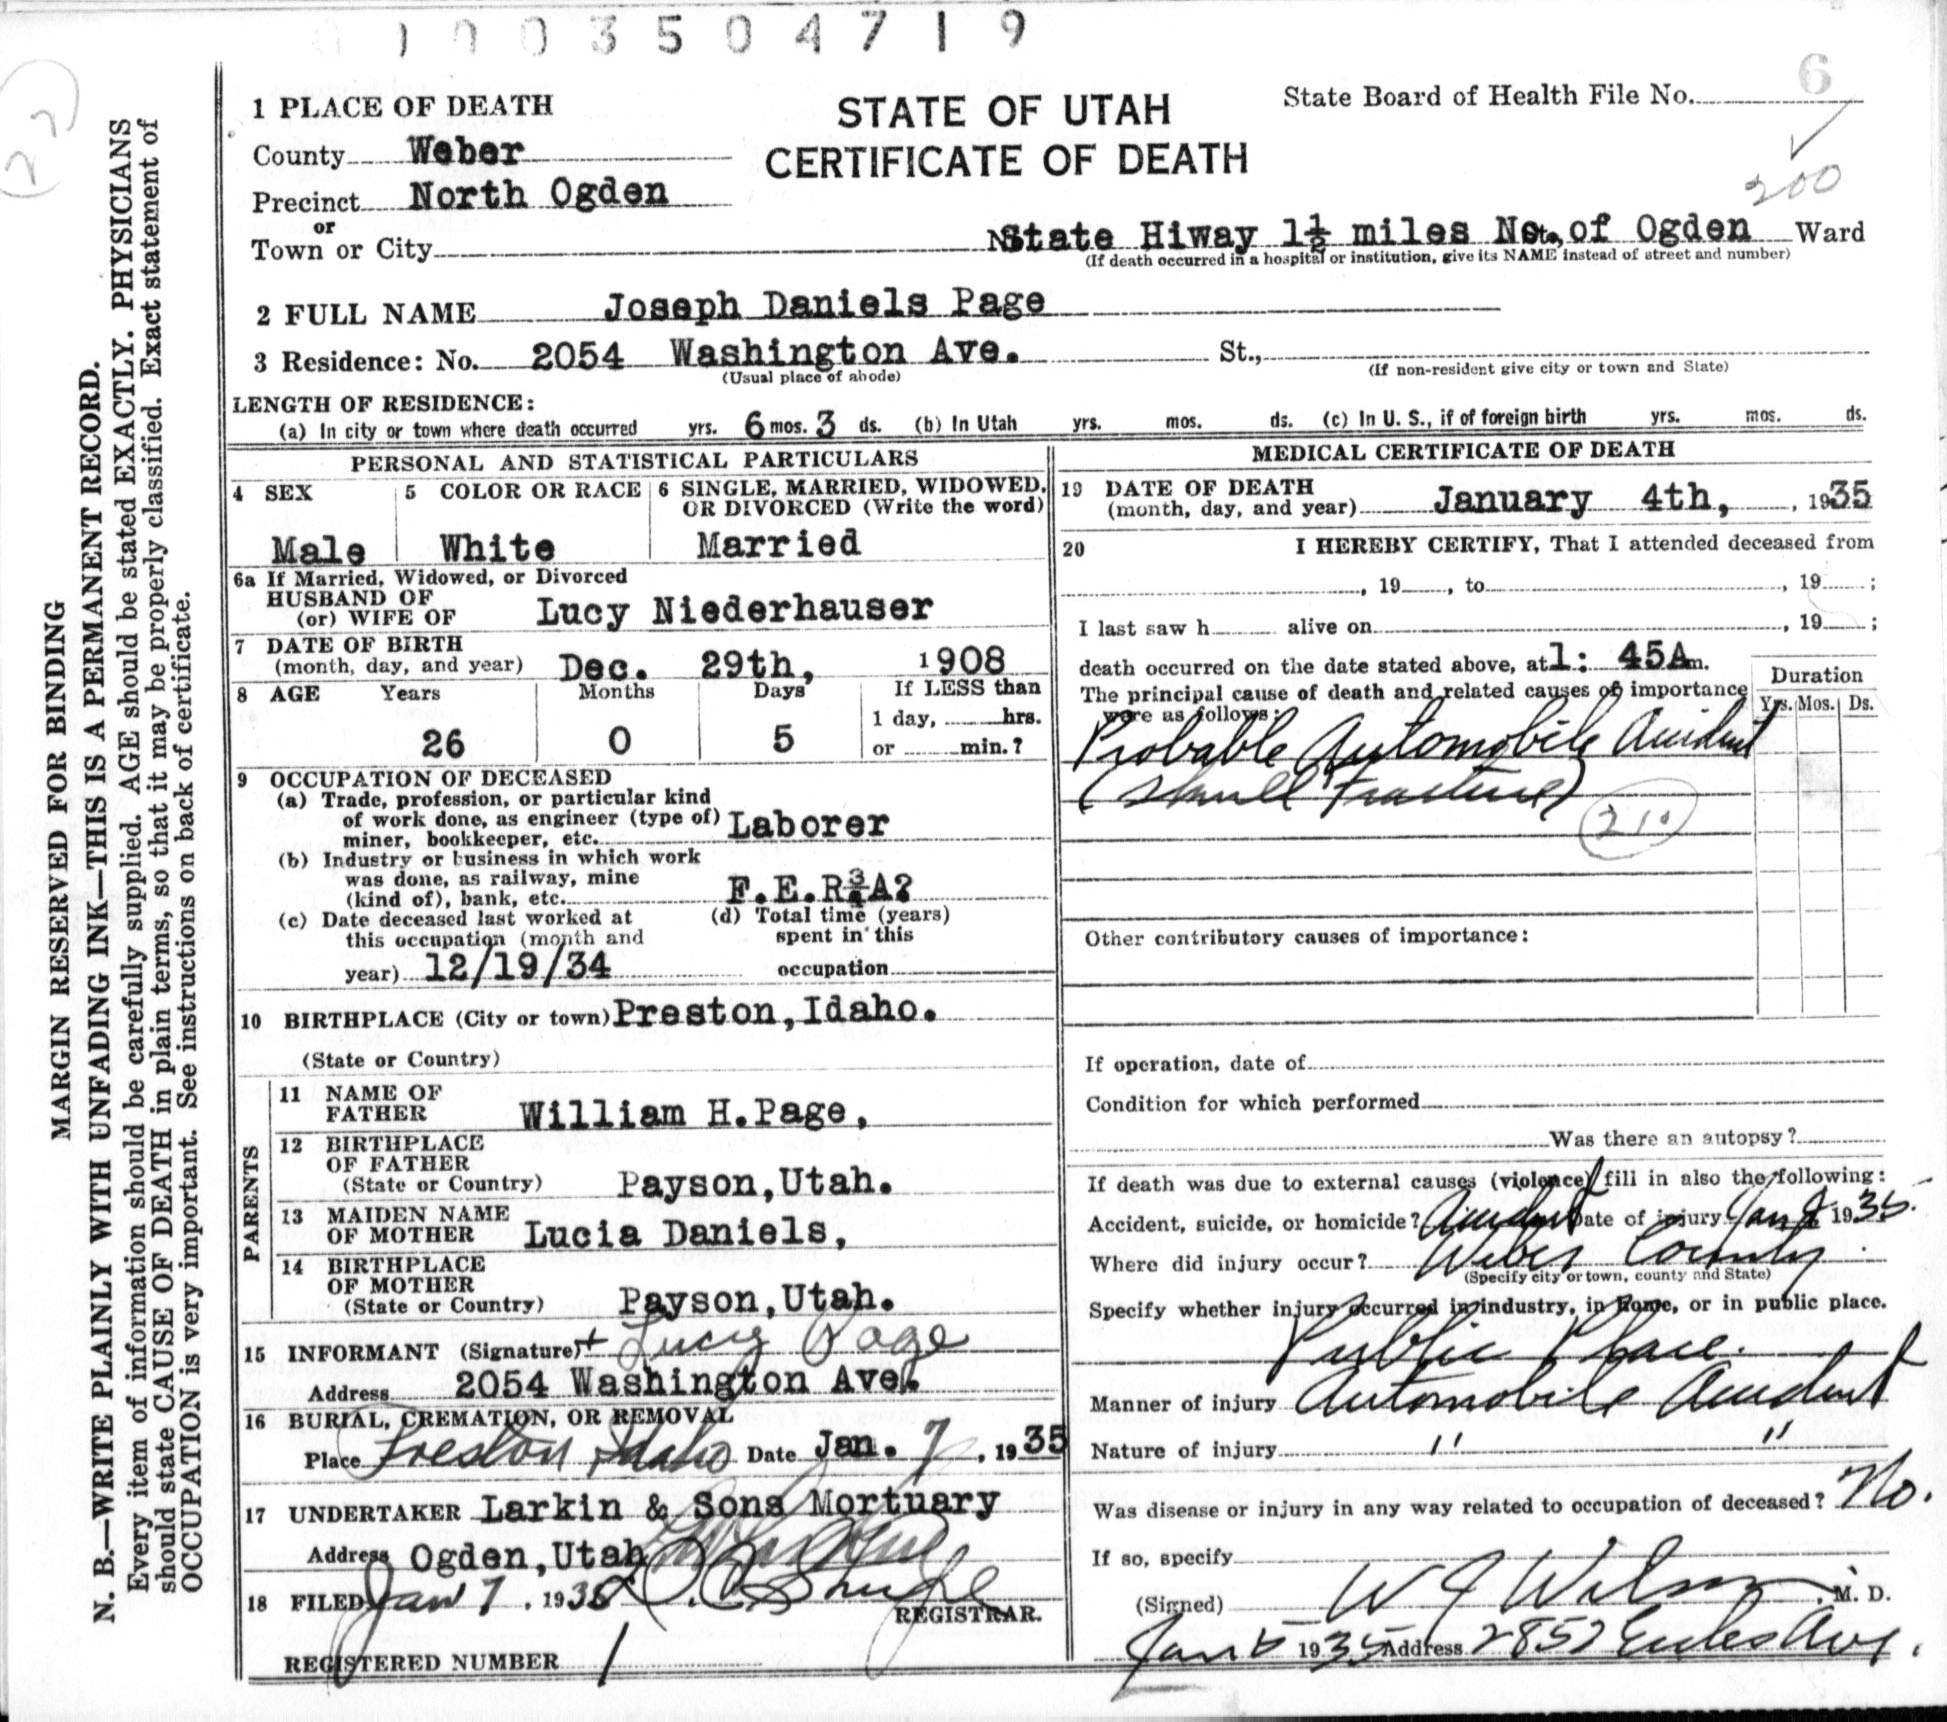 0 1 0 0 3 5 0 4 7 1 9
MARGIN RESERVED FOR BINDING
N. B.—WRITE PLAINLY WITH UNFADING INK—THIS IS A PERMANENT RECORD.
Every item of information should be carefully supplied. AGE should be stated EXACTLY. PHYSICIANS
should state CAUSE OF DEATH in plain terms, so that it may be properly classified. Exact statement of
OCCUPATION is very important. See instructions on back of certificate.
1 PLACE OF DEATH
County Weber
Precinct North Ogden
or
Town or City
STATE OF UTAH
CERTIFICATE OF DEATH
State Board of Health File No. 6
200
State Hiway 1½ miles No. of Ogden Ward
(If death occurred in a hospital or institution, give its NAME instead of street and number)
2 FULL NAME Joseph Daniels Page
3 Residence: No. 2054 Washington Ave. St.,
(Usual place of abode) (If non-resident give city or town and State)
LENGTH OF RESIDENCE:
(a) In city or town where death occurred yrs. 6 mos. 3 ds. (b) In Utah yrs. mos. ds. (c) In U. S., if of foreign birth yrs. mos. ds.
PERSONAL AND STATISTICAL PARTICULARS
4 SEX
Male
5 COLOR OR RACE
White
6 SINGLE, MARRIED, WIDOWED,
OR DIVORCED (Write the word)
Married
6a If Married, Widowed, or Divorced
HUSBAND OF
(or) WIFE OF Lucy Niederhauser
7 DATE OF BIRTH
(month, day, and year) Dec. 29th, 1908
8 AGE Years Months Days If LESS than
1 day, hrs.
26 0 5 or min.?
9 OCCUPATION OF DECEASED
(a) Trade, profession, or particular kind
of work done, as engineer (type of)
miner, bookkeeper, etc. Laborer
(b) Industry or business in which work
was done, as railway, mine
(kind of), bank, etc. F.E.R¾A?
(c) Date deceased last worked at
this occupation (month and
year) 12/19/34
(d) Total time (years)
spent in this
occupation
10 BIRTHPLACE (City or town) Preston, Idaho.
(State or Country)
PARENTS
11 NAME OF
FATHER William H. Page,
12 BIRTHPLACE
OF FATHER
(State or Country) Payson, Utah.
13 MAIDEN NAME
OF MOTHER Lucia Daniels,
14 BIRTHPLACE
OF MOTHER
(State or Country) Payson, Utah.
15 INFORMANT (Signature) + Lucy Page
Address 2054 Washington Ave.
16 BURIAL, CREMATION, OR REMOVAL
Place Preston Idaho Date Jan. 7, 1935
17 UNDERTAKER Larkin & Sons Mortuary
Address Ogden, Utah
18 FILED Jan 7, 1935
REGISTRAR.
REGISTERED NUMBER 1
MEDICAL CERTIFICATE OF DEATH
19 DATE OF DEATH
(month, day, and year) January 4th, , 1935
20 I HEREBY CERTIFY, That I attended deceased from
, 19 , to , 19 ;
I last saw h alive on , 19 ;
death occurred on the date stated above, at 1: 45A m.
The principal cause of death and related causes of importance
were as follows:
Duration
Yrs. Mos. Ds.
Probable Automobile Accident
(Skull Fracture)
210
Other contributory causes of importance:
If operation, date of
Condition for which performed
Was there an autopsy?
If death was due to external causes (violence) fill in also the following:
Accident, suicide, or homicide? Accident Date of injury Jan 1935.
Where did injury occur? Weber County.
(Specify city or town, county and State)
Specify whether injury occurred in industry, in home, or in public place.
Public Place.
Manner of injury Automobile Accident
Nature of injury " "
Was disease or injury in any way related to occupation of deceased? No.
If so, specify
(Signed) W J Wilson, M. D.
Jan 1935 Address 2852 Eccles Ave.